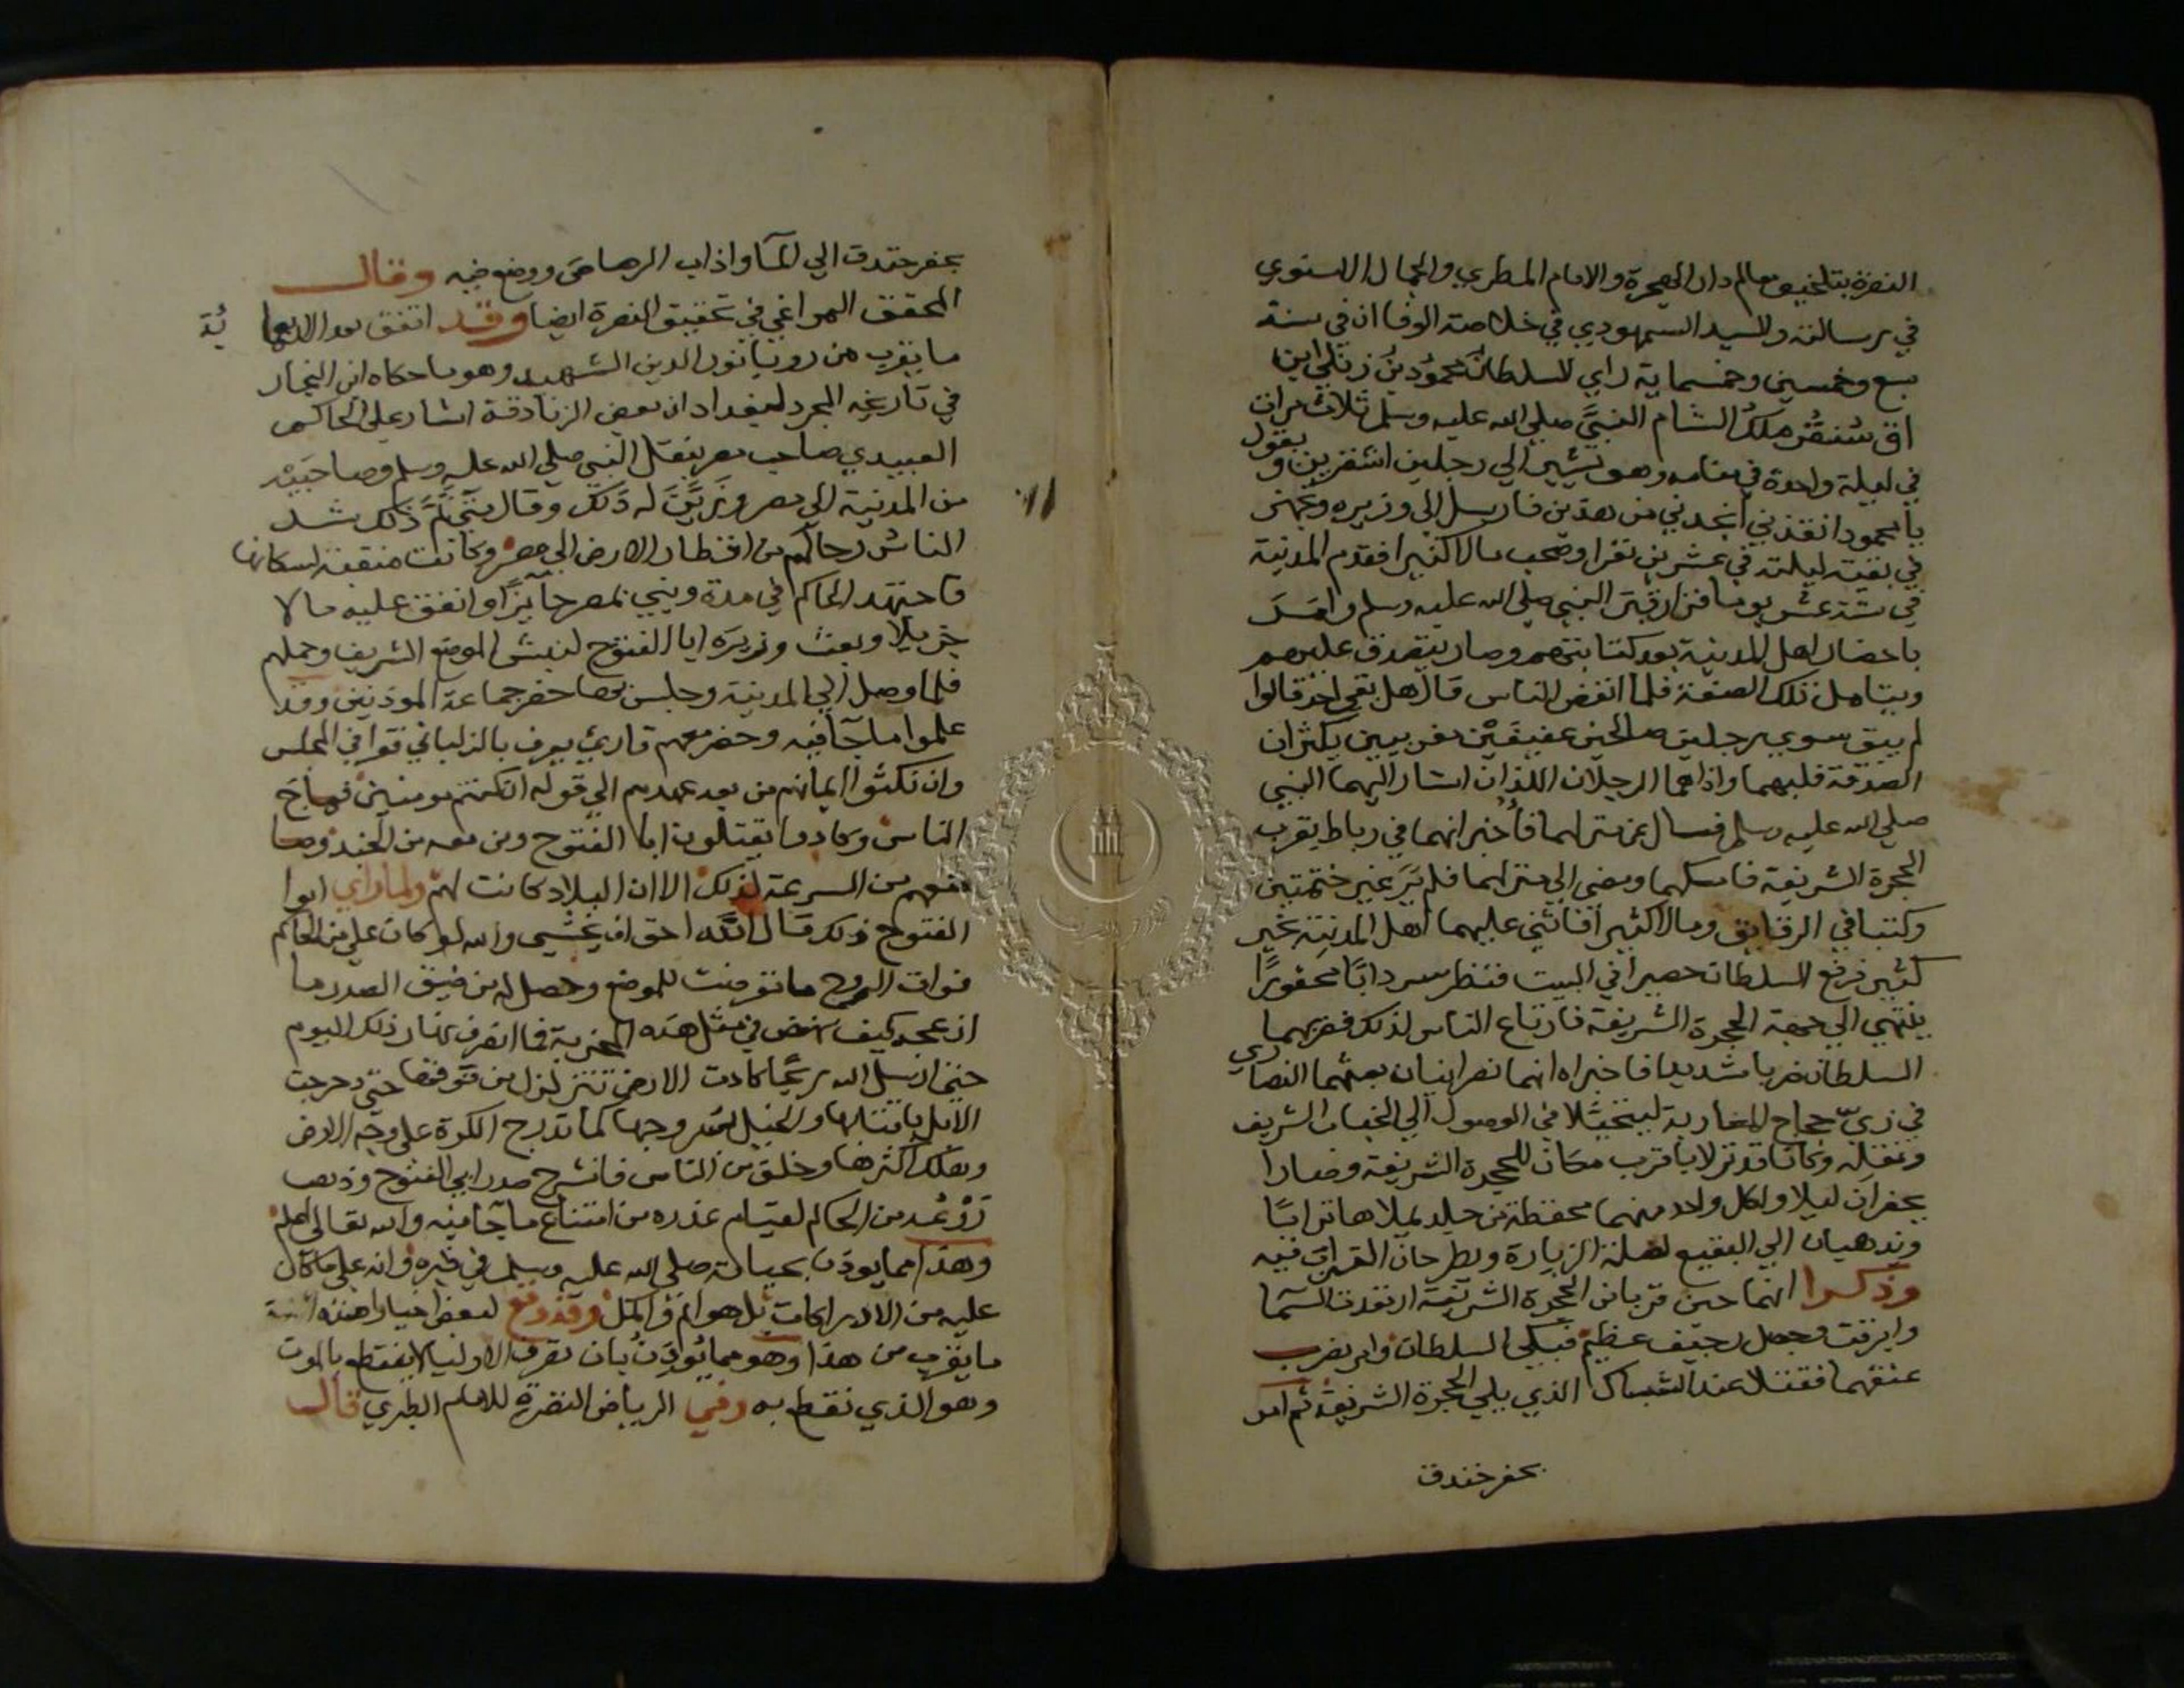 النضرة بتلخيص معالم دار الهجرة والامام المطري والجمال الاسنوي
في رسالته والسيد السمهودي في خلاصة الوفا ان في سنة
سبع وخمسين وخمسماية راي السلطان محمود بن زنكي ابن
اق سنقر ملك الشام النبي صلي الله عليه وسلم ثلاث مرات
في ليلة واحدة في منامه وهو يشير الي رجلين اشقرين ويقول
يا محمود انقذني انجدني من هذين فارسل الي وزيره وتجهز
في بقية ليلته في عشرين نفرا وصحب مالا كثيرا فقدم المدينة
في ستة عشر يوما فزار قبر النبي صلي الله عليه وسلم وامر
باحضار اهل المدينة بعد كتابتهم وصار يتصدق عليهم
ويتامل تلك الصفة فلما انفض الناس قال هل بقي احد قالوا
لم يبق سوي رجلين صالحين عفيفين مغربيين يكثران
الصدقة فلبهما واذا هما الرجلان اللذان اشار اليهما النبي
صلي الله عليه وسلم فسال عن منزلهما فأخبر انهما في رباط بقرب
الحجرة الشريفة فامسكهما ومضي الي منزلهما فلم ير غير ختمتين
وكتبا في الرقايق ومالا كثيرا فاثني عليهما اهل المدينة بخير
كثير فرفع السلطان حصيرا في البيت فنظر سردابا محفورا
ينتهي الي جهة الحجرة الشريفة فارتاع الناس لذلك فضربهما
السلطان ضربا شديدا فاخبراه انهما نصرانيان بعثهما النصاري
في زي حجاج المغاربة ليتحيلا في الوصول الي الجناب الشريف
ونقله وكانا قد نزلا باقرب مكان للحجرة الشريفة وصارا
يحفران ليلا ولكل واحد منهما محفظة من جلد يملاها ترابا
ويذهبان الي البقيع لعلة الزيارة ويطرحان التراب فيه
وذكرا انهما حين قربا من الحجرة الشريفة ارتعدت السما
وابرقت وحصل رجيف عظيم فبكي السلطان وامر بضرب
عنقهما فقتلا عند الشباك الذي يلي الحجرة الشريفة ثم امر
بحفر خندق
بحفر خندق الي الما واذاب الرصاص ووضع فيه وقال
المحقق المراغي في تحقيق النصرة ايضا وقد اتفق بعد الاربعماية
ما يقرب من رويا نور الدين الشهيد وهو ما حكاه ابن النجار
في تاريخه لبغداد ان بعض الزنادقة اشار علي الحاكم
العبيدي صاحب مصر بنقل النبي صلي الله عليه وسلم وصاحبيه
من المدينة الي مصر وزين له ذلك وقال متي تم ذلك شد
الناس رحالهم من اقطار الارض الي مصر وكانت منقبة لسكانها
فاجتهد الحاكم في مدة وبني بمصر حايزا وانفق عليه مالا
جزيلا وبعث وزيره ابا الفتوح لنبش الموضع الشريف وحملهم
فلما وصل الي المدينة وجلس بها حضر جماعة الموذنين وقد
علموا ما جآ فيه وحضر معهم قاري يعرف بالزلباني فقرا في المجلس
وان نكثوا ايمانهم من بعد عهدهم الي قوله ان كنتم مومنين فهاج
الناس وكادوا يقتلون ابا الفتوح ومن معه من الجند وما
منعهم من السرعة لذلك الا ان البلاد كانت لهم ولما راي ابوا
الفتوح ذلك قال الله احق ان يخشي والله لو كان علي من الحاكم
فوات الروح ما تعرضت للموضع وحصل له من ضيق الصدر ما
ازعجه كيف نهض في مثل هذه المخزية فما انصرف نهار ذلك اليوم
حتي ارسل الله ريحا كادت الارض تتزلزل من قوتها حتي دحرجت
الابل باقتابها والخيل بسروجها كما تدحرج الكرة علي وجه الارض
وهلك اكثرها وخلق من الناس فانشرح صدر ابي الفتوح وذهب
روعه من الحاكم لقيام عذره من امتناع ما جآ فيه والله تعالي اعلم
وهذا مما يوذن بحياته صلي الله عليه وسلم في قبره وانه علي ما كان
عليه من الادراكات بل هو اتم واكمل وقد وقع لبعض
ما يقرب من هذا وهو مما يوذن بان تصرف الاوليا لا ينقطع بالموت
وهو الذي نقطع به وفي الرياض النضرة للامام الطبري قال